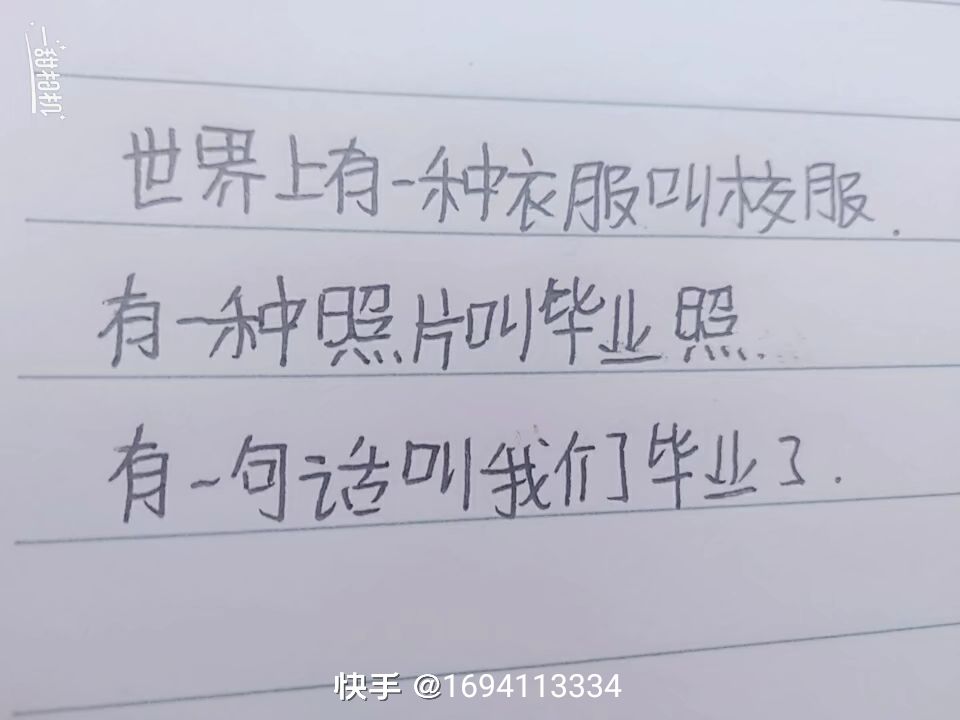 一甜相机
世界上有一种衣服叫校服.
有一种照片叫毕业照.
有一句话叫我们毕业了.
快手 @1694113334